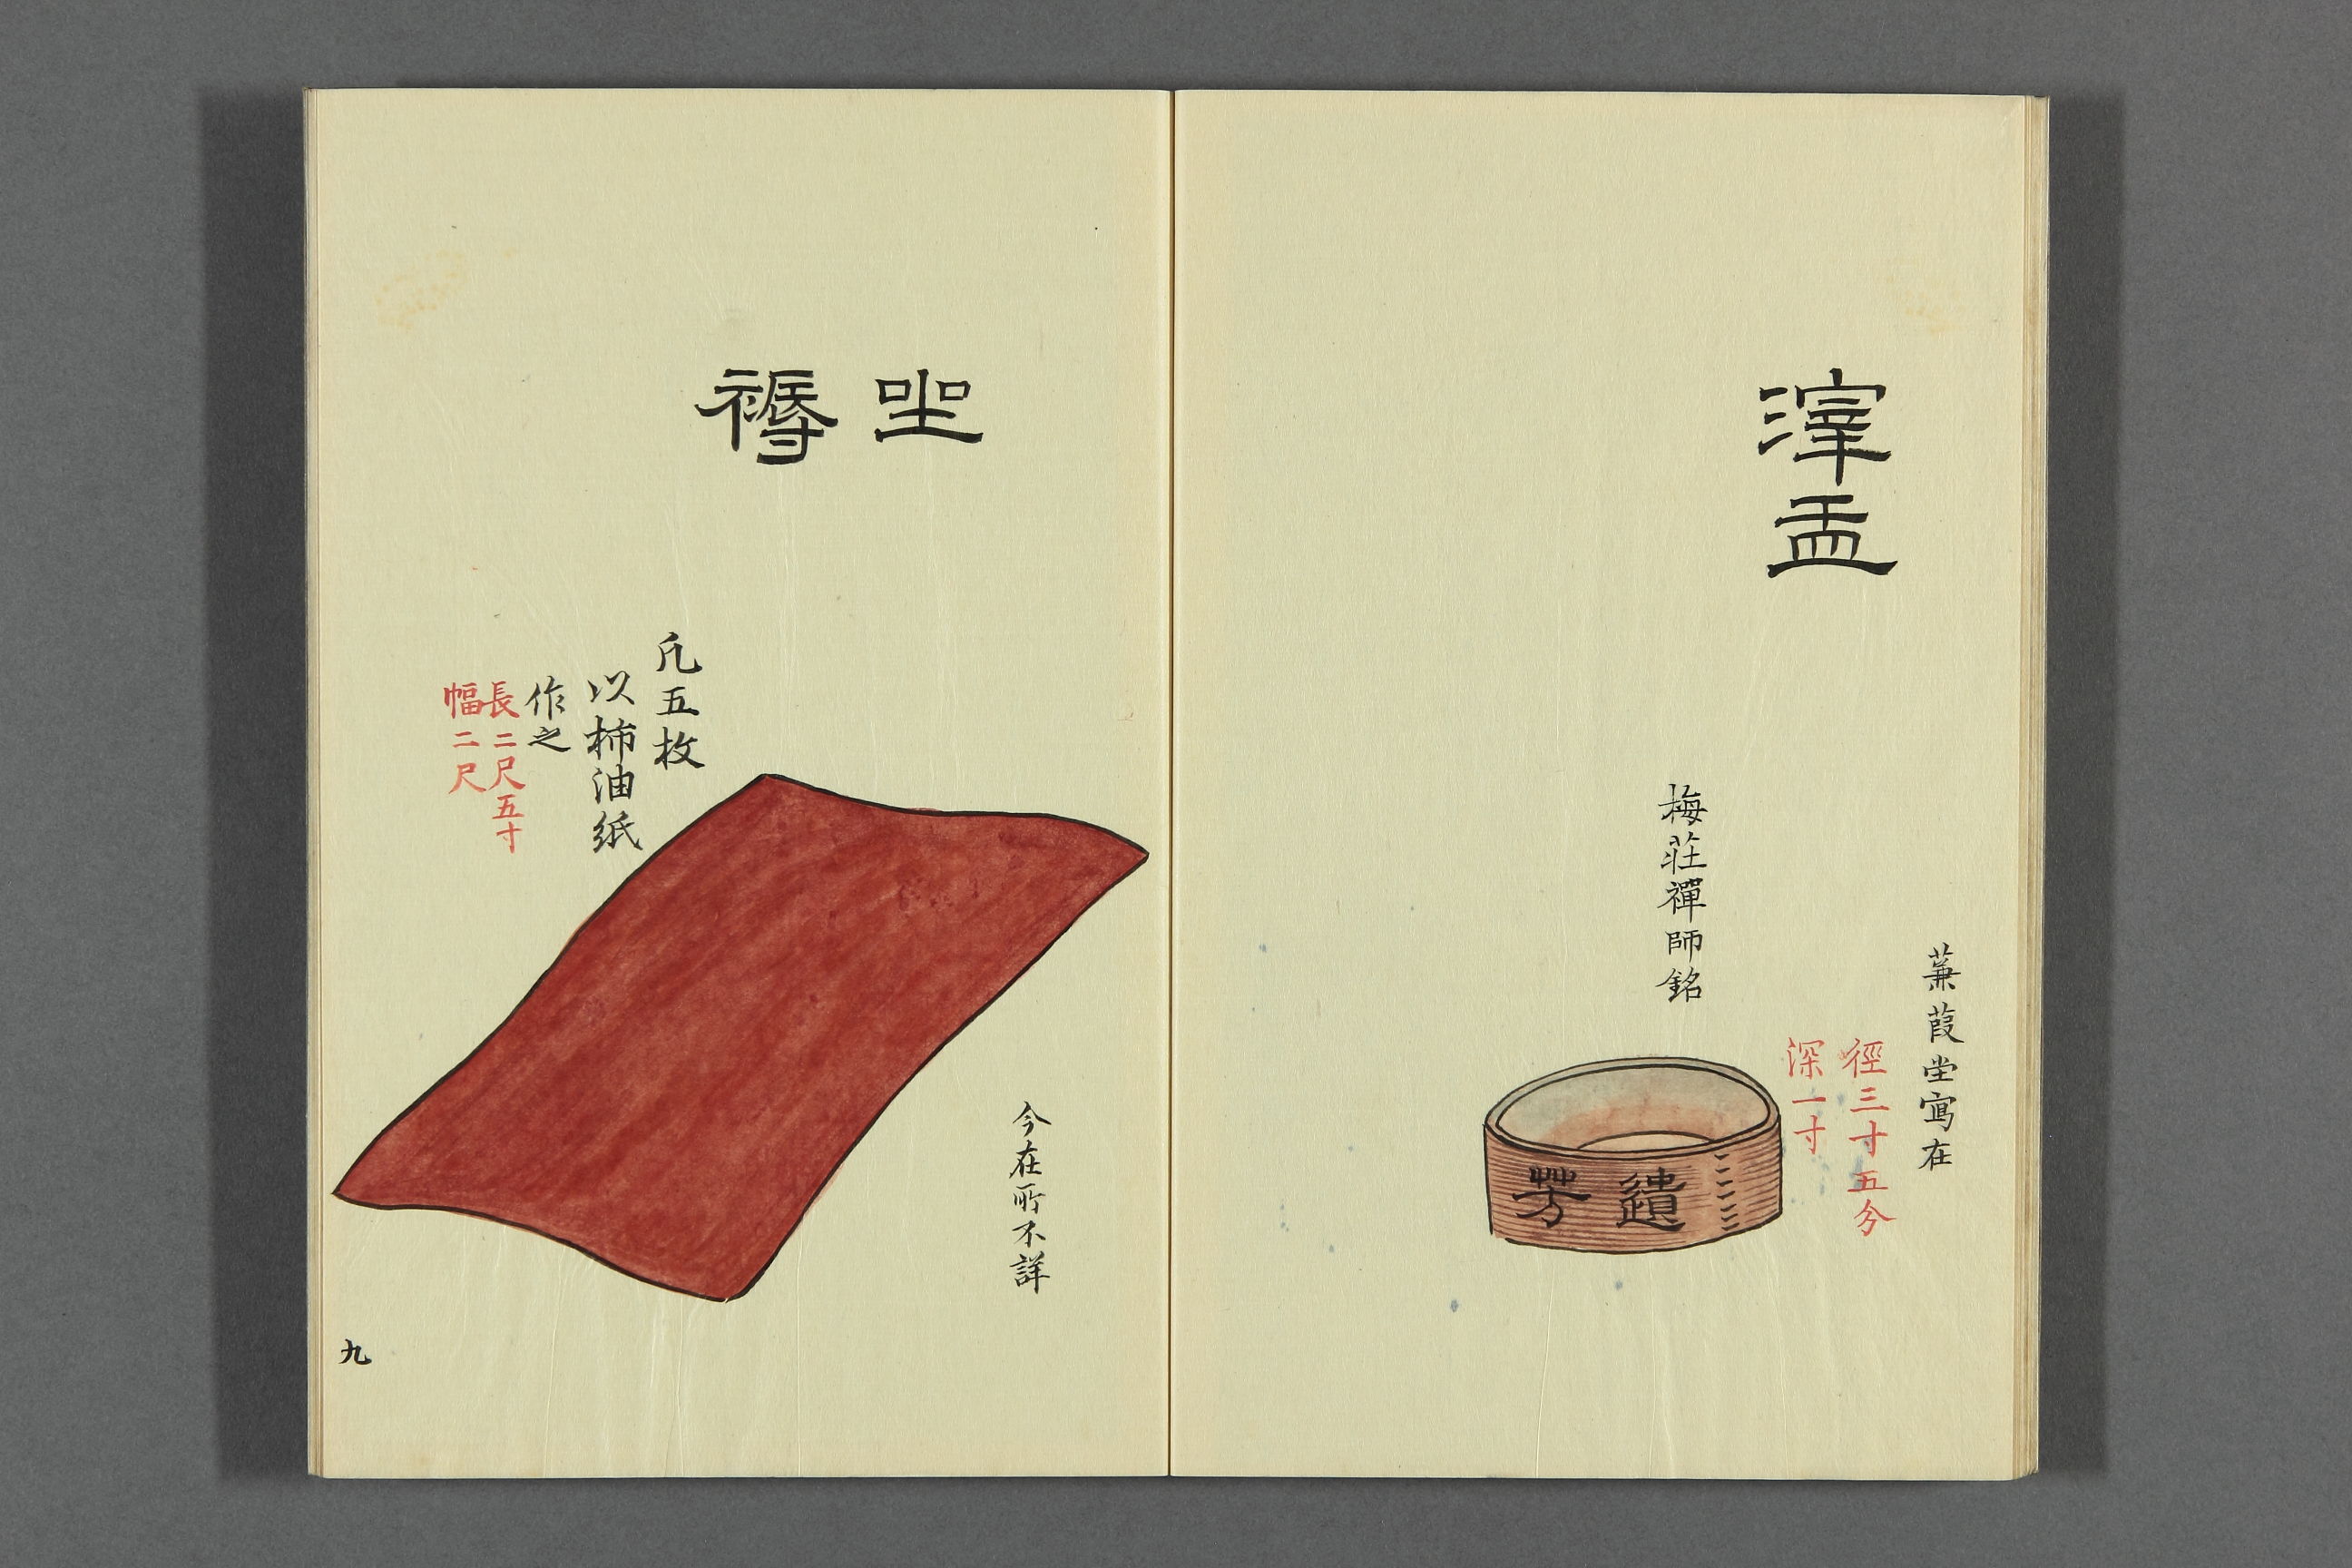 滓盂
蒹葭堂寫在
徑三寸五分
深一寸
梅莊禪師銘
遺芳
坐褥
凡五枚
以柿油紙
作之
長二尺五寸
幅二尺
今在所不詳
九